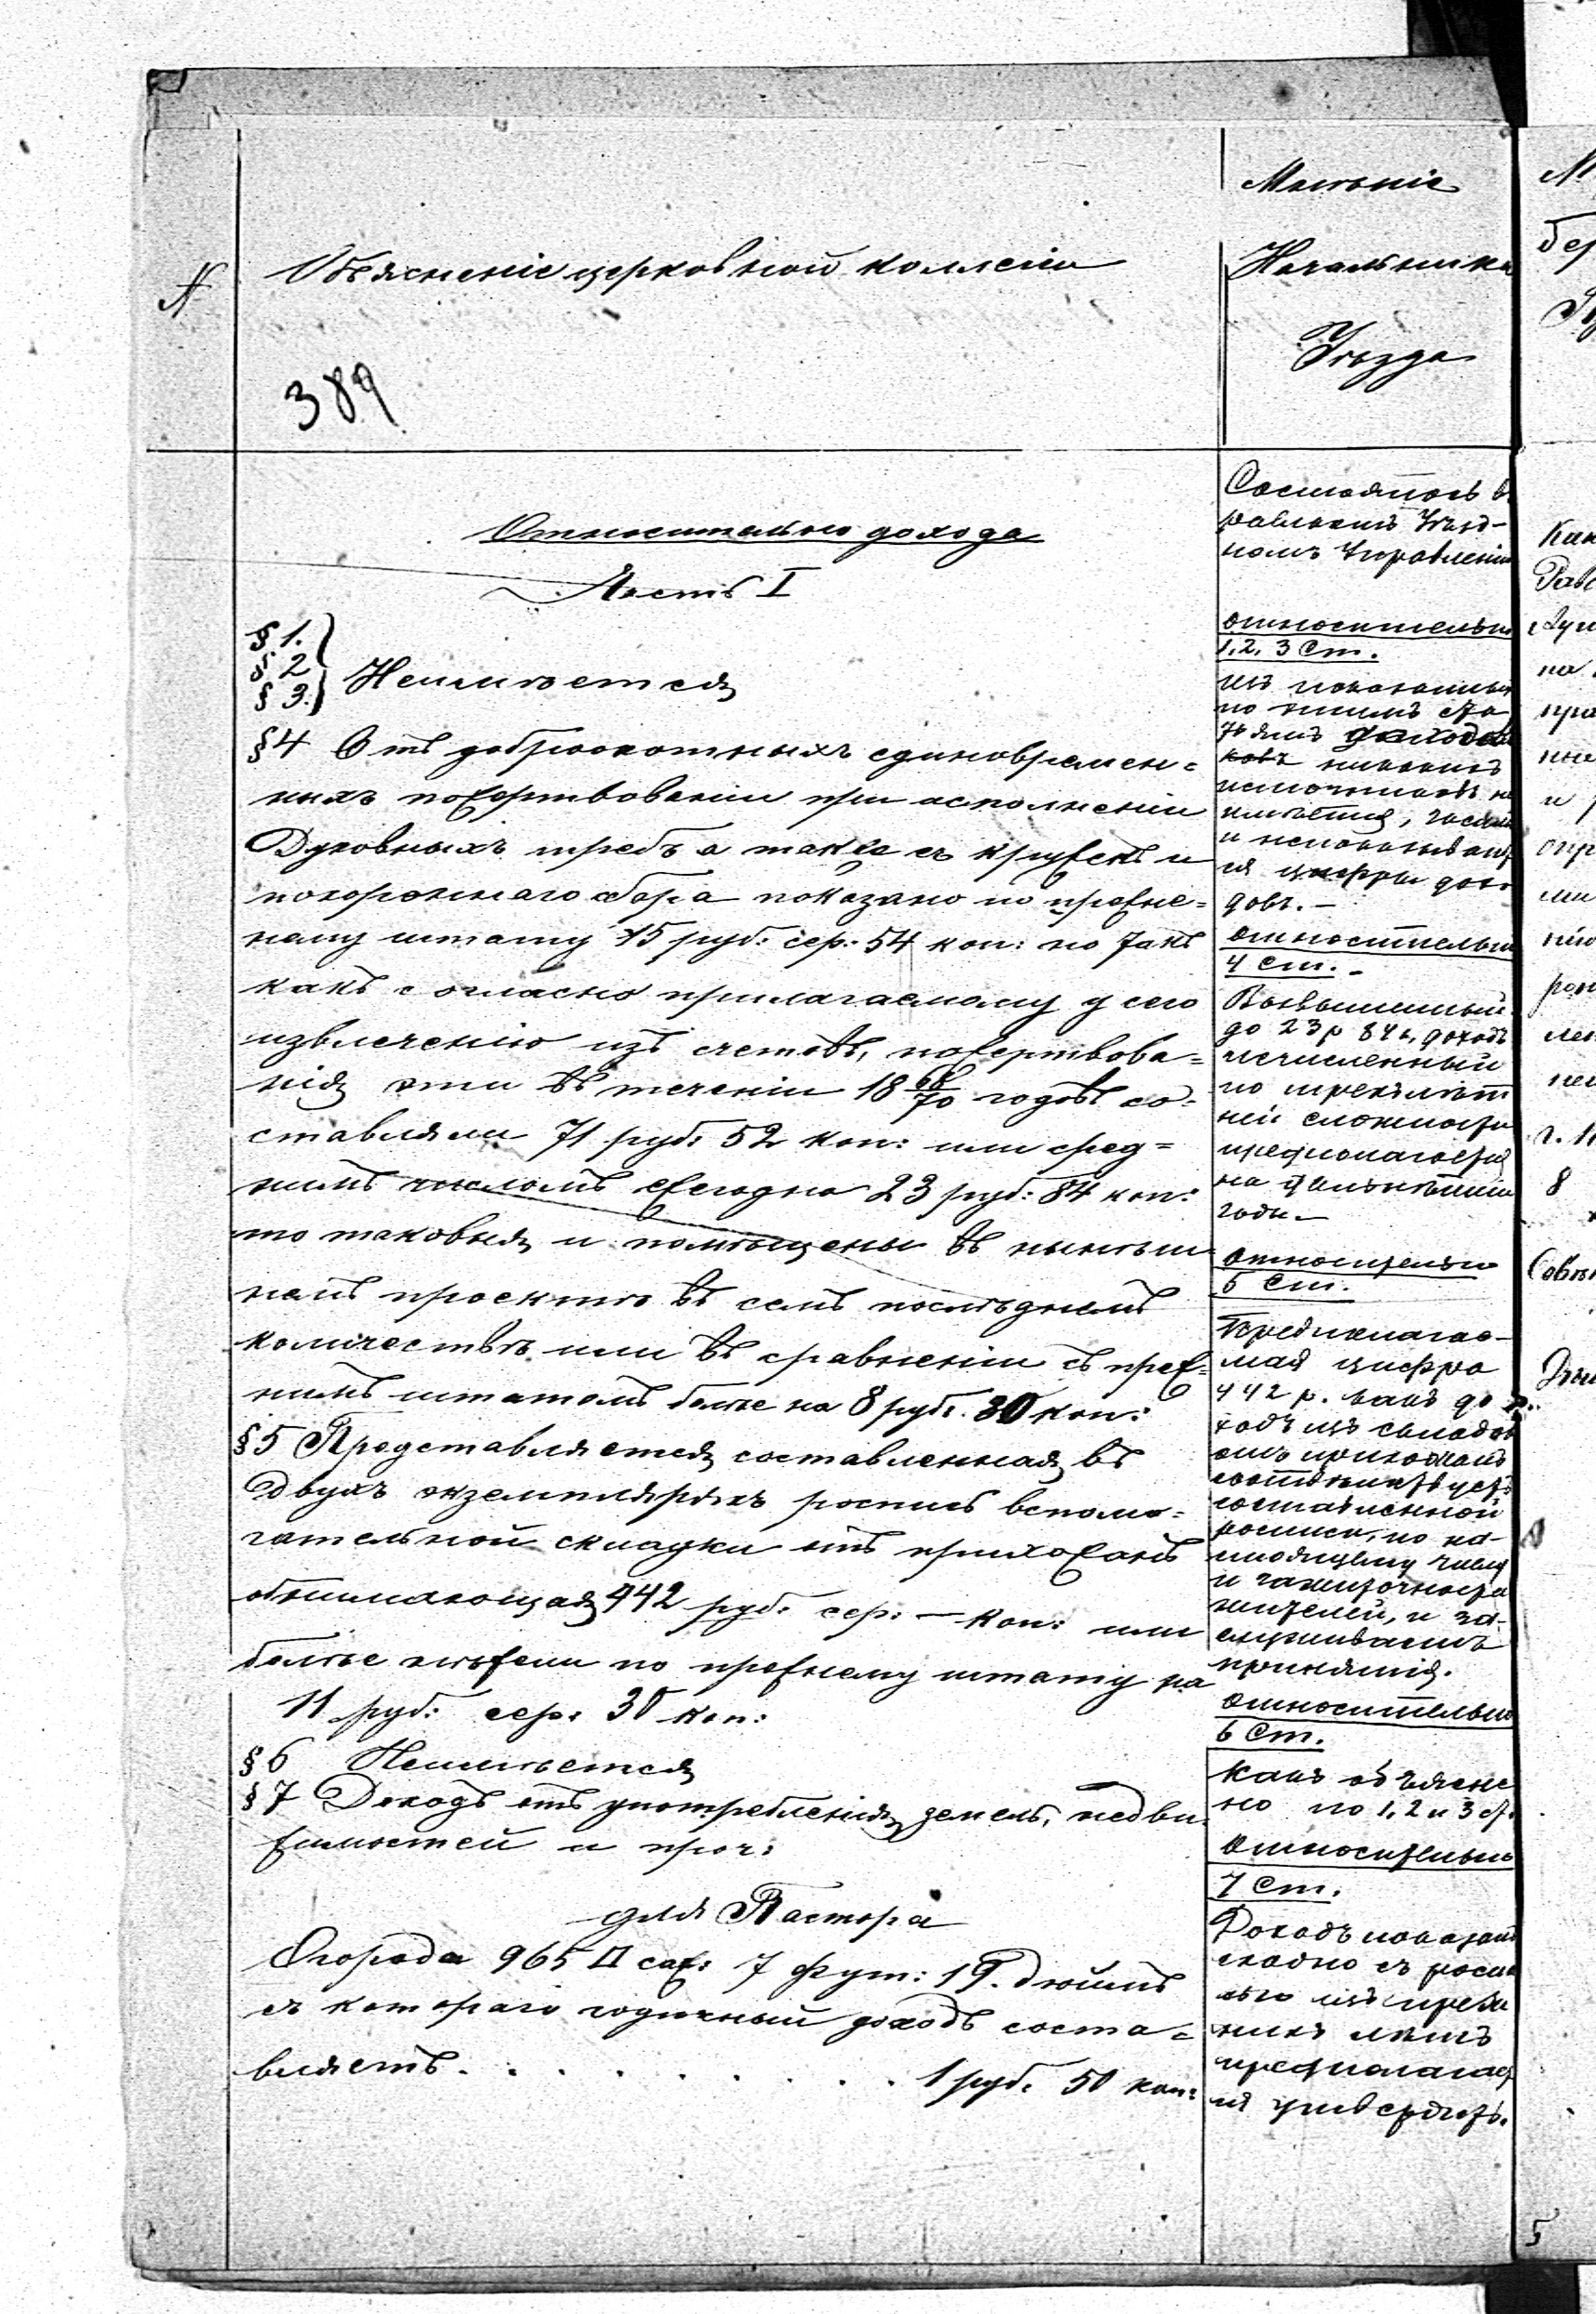 N
Объясненіе церковной коллегіи
389
Мнѣніе
Начальника
Уѣзда
Относительно дохода
Часть I
§ 1.
§ 2
§ 3.
Неимѣется
§4 Отъ доброхотныхъ единовремен=
ныхъ пожертвованіи при исполненіи
Духовныхъ требъ а также съ кружекъ и
похороннаго сбора показано по прежне=
нему штату 15 руб: сер: 54 коп: но такъ
какъ согласно прилагаемому у сего
извлеченію изъ счетовъ, пожертвова=
нія эти въ теченіи 18 68/70 годовъ со=
ставляли 71 руб: 52 коп: или сред=
нимъ числомъ ежегодно 23 руб: 84 коп:
то таковыя и помѣщены въ нынѣш=
немъ проектѣ въ семъ послѣднемъ
количествѣ или въ сравненіи съ преж=
нимъ штатомъ болѣе на 8 руб. 30 коп:
§5 Представляется составленная въ
двухъ экземплярахъ роспись вспомо=
гательной складки отъ прихожанъ
обнимающая 442 руб: сер: — коп: или
болѣе нежели по прежнему штату на
11 руб: сер: 30 коп:
§6 Неимѣется
§7 Доходъ отъ употребленія земель, недви
жимостей и проч:
для Пастора
Огорода 965 □ саж: 7 фут: 19. дюймъ
съ котораго годичный доходъ соста=
вляетъ. . . . . . . . . 1 руб: 50 коп:
Состоялось въ
равскомъ Уѣзд-
номъ Управленіи
относительно
1, 2, 3 Ст.
по симъ ста
тьямъ доходовъ
никакихъ
источниковъ не
имѣется,
и непоказывает
ся цифры дохо
довъ.—
относительно
4 ст.—
Возвышенный
до 23 р 84 к, доходъ
исчисленный
по трехлѣт
ней сложности
предполагается
на дальнѣйшіе
годы.—
относительно
5 ст.
Предполагае-
мая цифра
442 р. какъ до
ходъ изъ складокъ
отъ прихожанъ
соотвѣтствуетъ
составленной
росписи, по на-
стоящему числу
и зажиточности
жителей, и за-
служиваетъ
принятія.
относительно
6 Ст.
какъ объясне
но по 1, 2 и 3 ст.
относительно
7 Ст.
Доходъ показанъ
сходно съ роспи
нихъ лѣтъ
предполагает
ся утвердить.